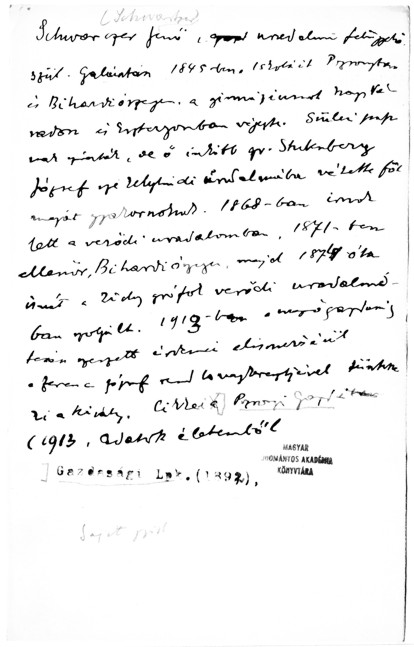 (Schwartzer
Schwarczer Jenő, uradalmi felügyelő
szül. Galántán 1845-ben. Iskoláit Pozsonyban
és Bihardiószegen, a gimnáziumot Nagyvá-
radon és Esztergomban végezte. Szülei pap-
nak szánták, de ő inkább gr. Stubenberg
József székelyhidi uradalmába vétette föl
magát gyakornoknak. 1868-ban írnok
lett a vezödi uradalomban, 1871-ben
ellenőr, Bihardiószegen, majd 1874 óta
ismét a Zichy grófok vezödi uradalmá-
ban szolgált. 1913-ban a mezőgazdaság
terén szerzett érdemei elismeréséül
a Ferenc József rend lovagkeresztjével tüntette
ki a király. Cikkei a Pozsonyi Gazdában
(1913, Adatok életemből
MAGYAR
TUDOMÁNYOS AKADÉMIA
KÖNYVTÁRA
] Gazdasági Lpk.(1892),
Saját